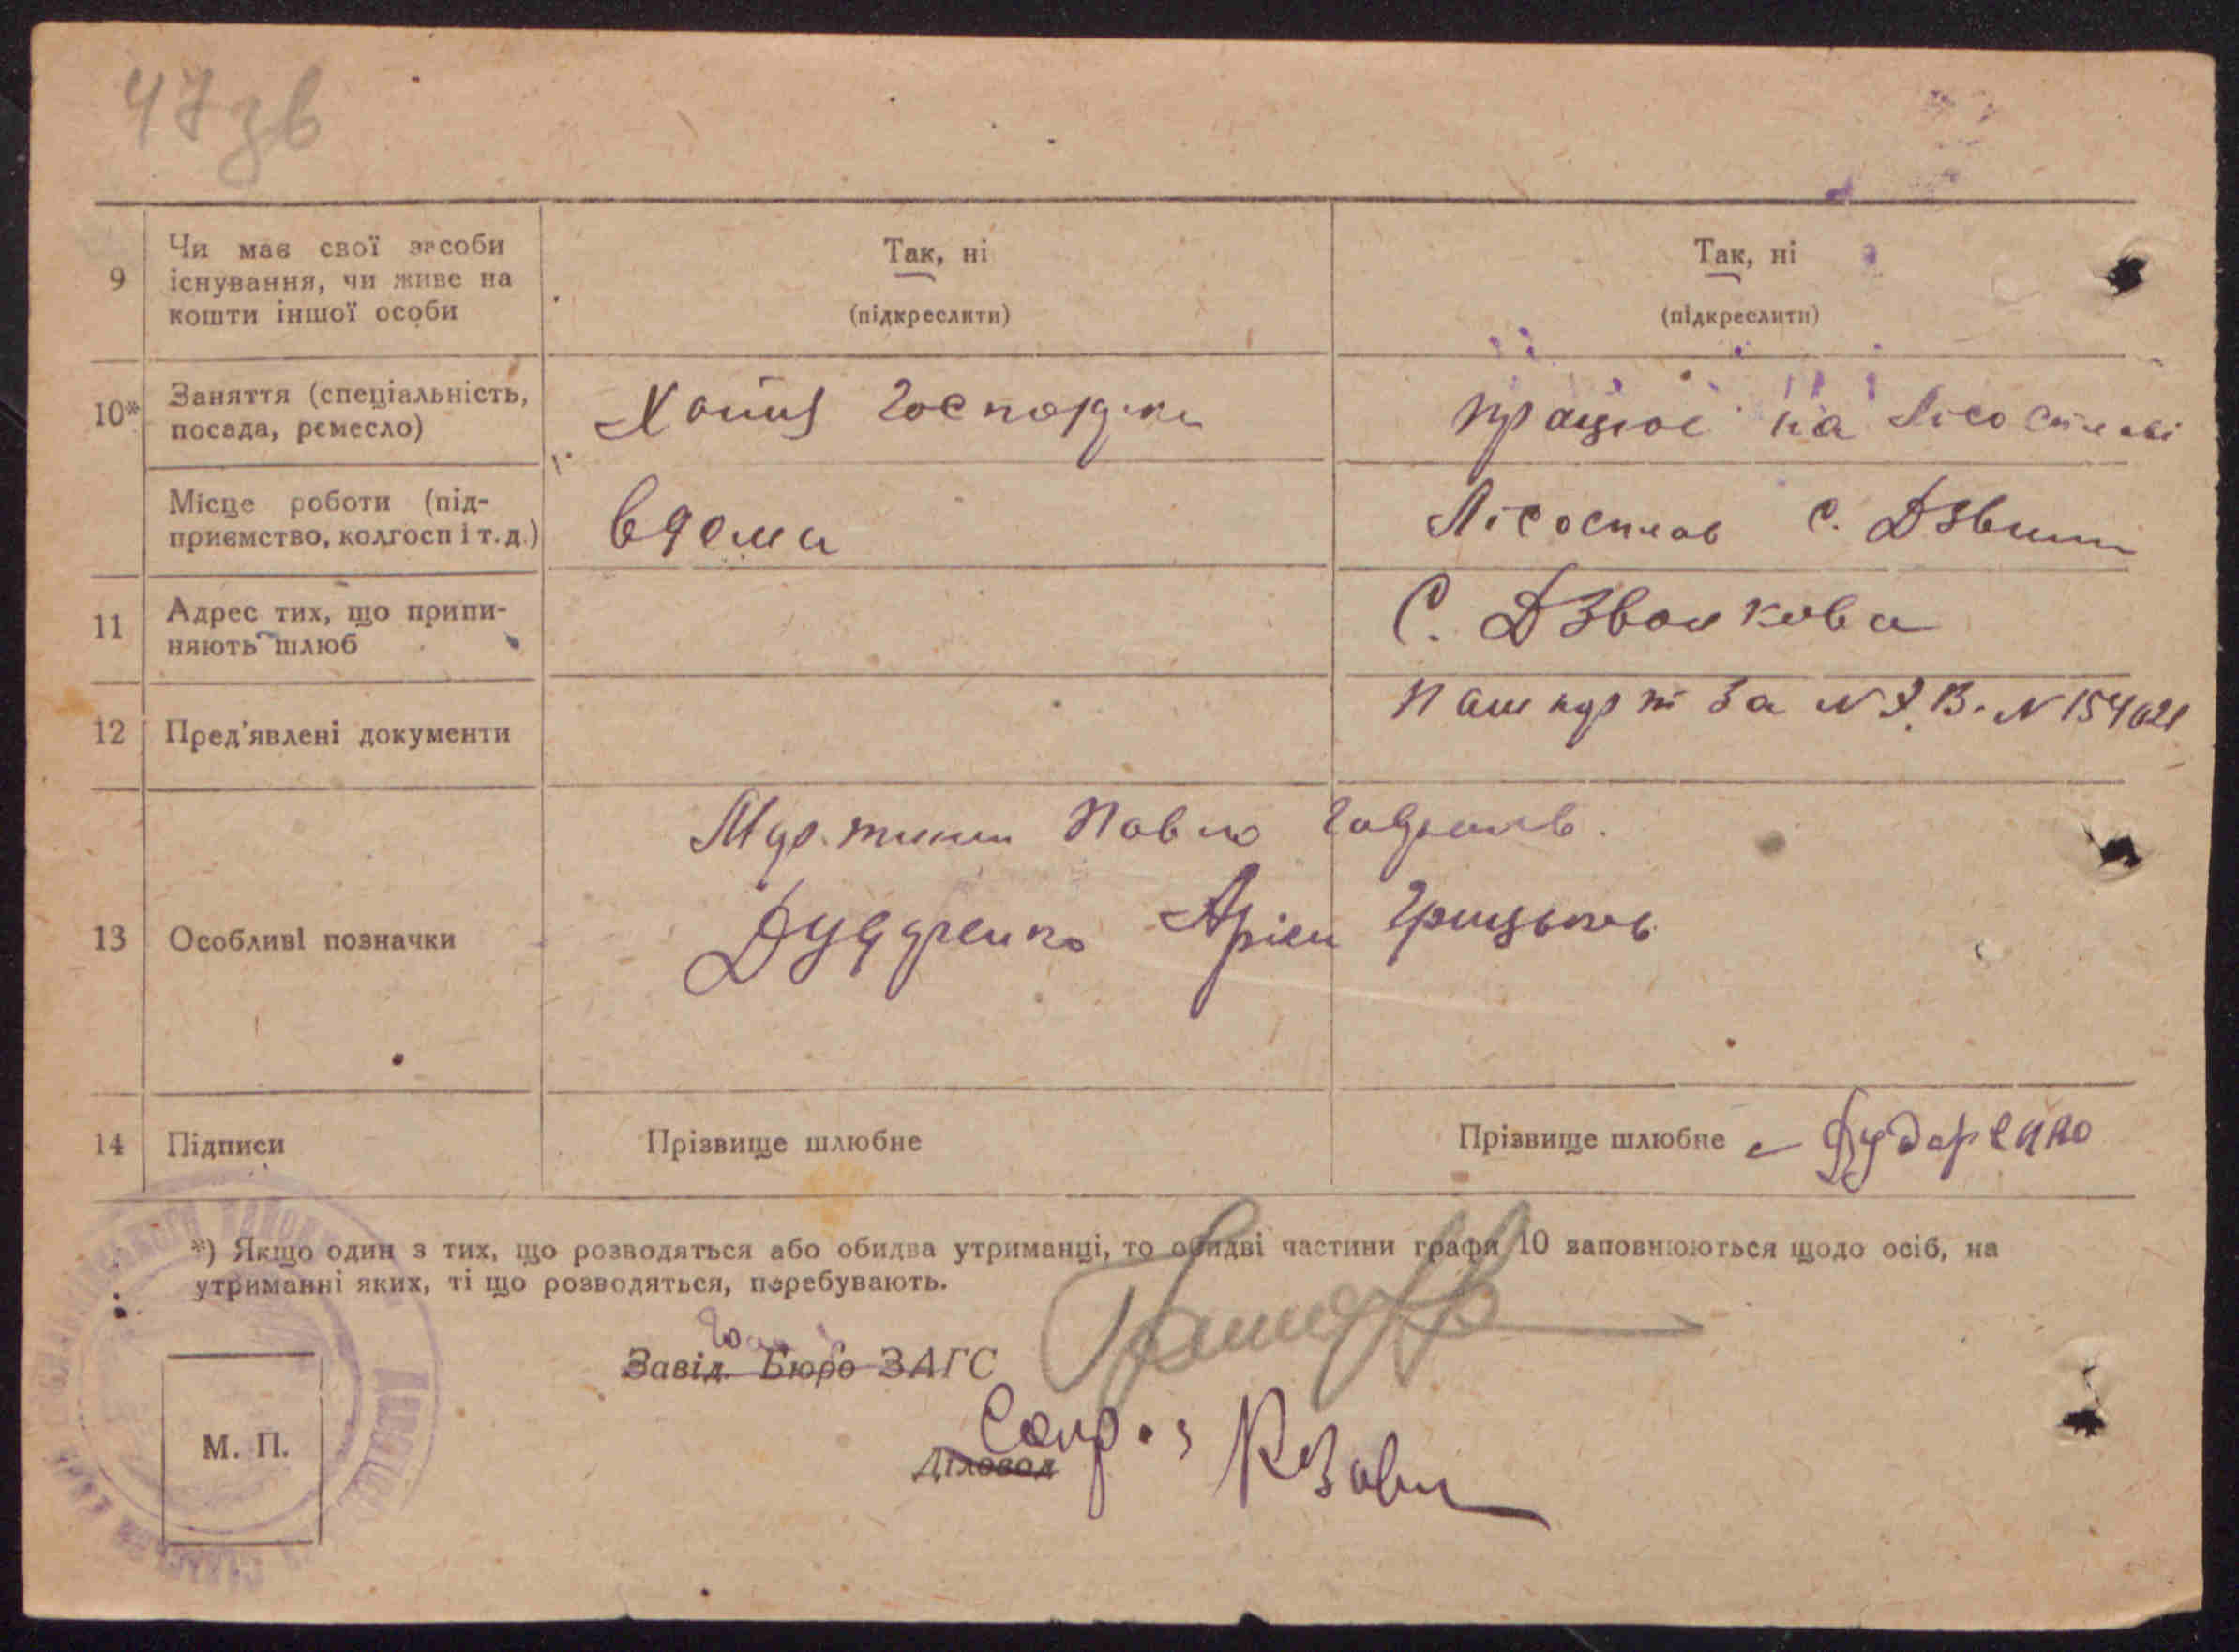 47 зв
9
Чи має свої засоби
існування, чи живе на
кошти іншої особи
Так, ні
(підкреслити)
Так, ні
(підкреслити)
10*
Заняття (спеціальність,
посада, ремесло)
Хатня господарка
працює на лісосплаві
Місце роботи (під-
приємство, колгосп і т. д.)
вдома
Лісосплав С.
11
Адрес тих, що припи-
няють шлюб
С. Дзвонкова
12
Пред'явлені документи
Пашпорт за N
13
Особливі позначки
Павло
Дуддренко Грицьков
14
Підписи
Прізвище шлюбне
Прізвище шлюбне Дударенко
*) Якщо один з тих, що розводяться або обидва утриманці, то обидві частини графи 10 заповнюються щодо осіб, на
утриманні яких, ті що розводяться, перебувають.
Завід. Бюро ЗАГС
Діловод
М. П.